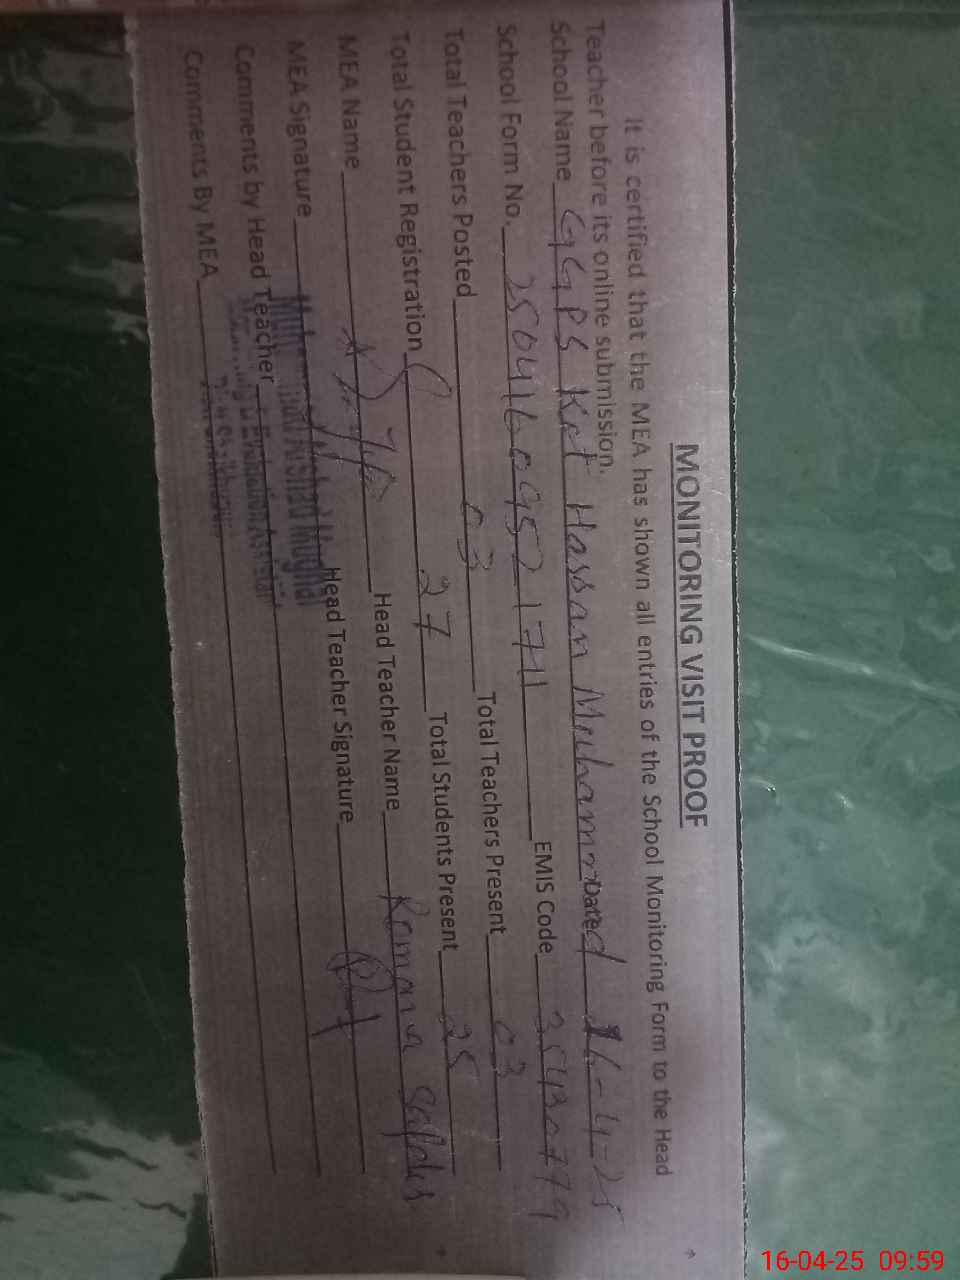 MONITORING VISIT PROOF
It is certified that the MEA has shown all entries of the School Monitoring Form to the Head
Teacher before its online submission.
School Name GGPS Kot Hassan Muhammad Dated 16-4-25
School Form No. 250416095217411 EMIS Code 35430779
Total Teachers Posted 03 Total Teachers Present 03
Total Student Registration 27 Total Students Present 25
MEA Name Head Teacher Name Romana Safdar
MEA Signature Head Teacher Signature
Comments by Head Teacher
Comments By MEA
16-04-25 09:59